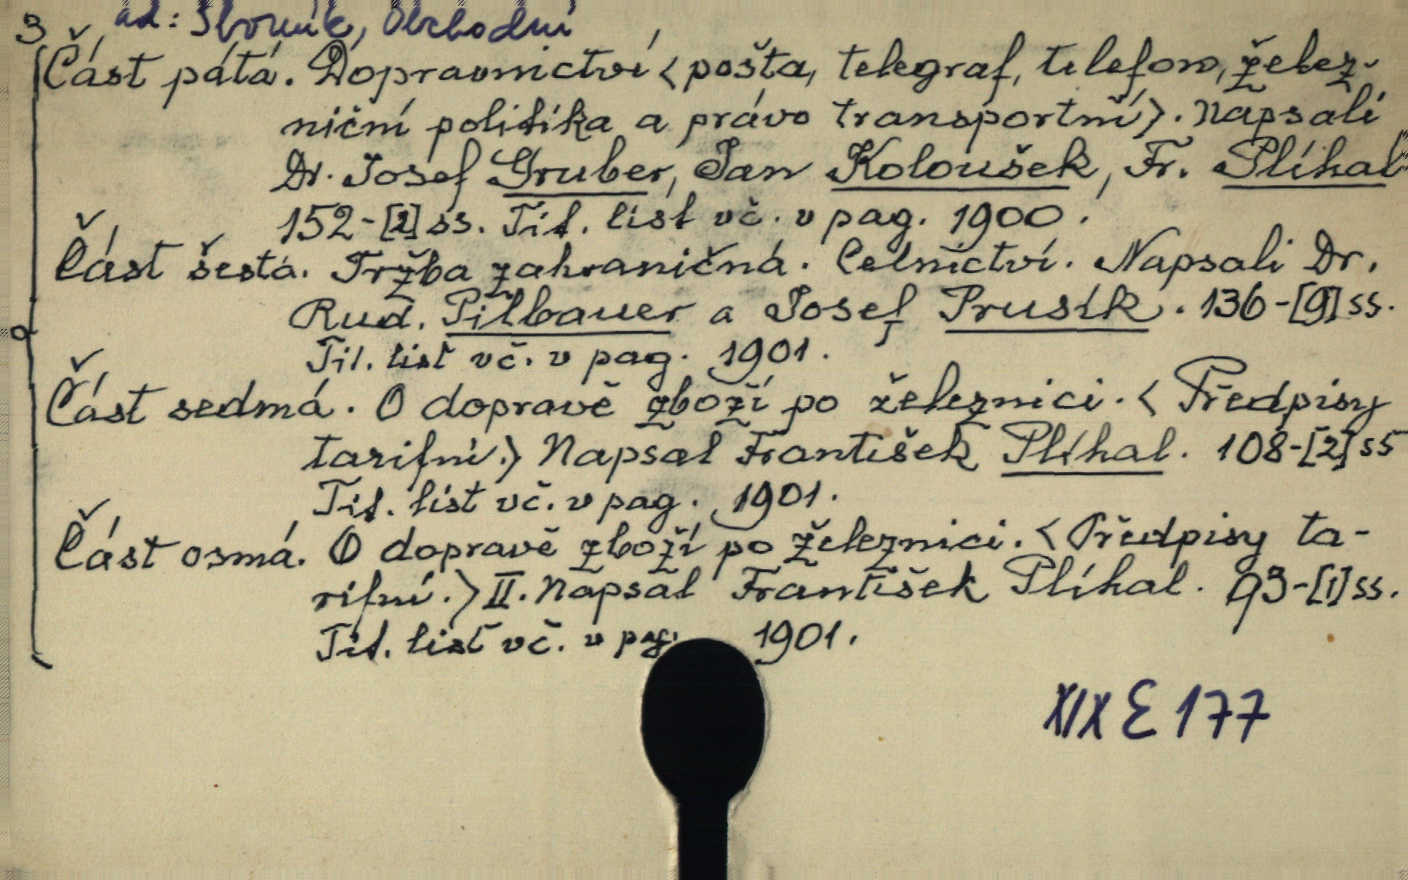 3 ad: Sborník, Obchodní
Část pátá. Dopravnictví <pošta, telegraf, telefon, želez-
niční politika a právo transportní>. Napsali
Dr. Josef Gruber, Jan Koloušek, Fr. Plíhal
152-[1] ss. Tit. list vč. v pag. 1900.
Část šestá. Tržba zahraničná. Celnictví. Napsali Dr.
Rud. Pilbauer a Josef Prusík. 136-[9] ss.
Tit. list vč. v pag. 1901.
Část sedmá. O dopravě zboží po železnici. <Předpisy
tarifní.> Napsal František Plíhal. 108-[2] ss
Tit. list vč. v pag. 1901.
Část osmá. O dopravě zboží po železnici. <Předpisy ta-
rifní.> II. Napsal František Plíhal. 93-[1] ss.
Tit. list vč. v pag. 1901.
XIX E 177